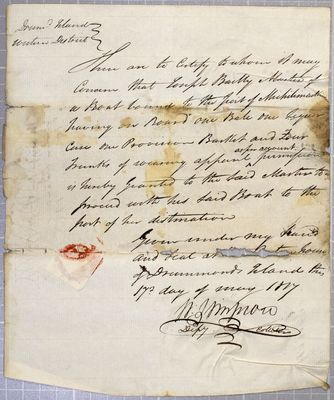 Drumd Island
Western District
These are to Certify to whom it may
Concern that Joseph Bailly Master of
a Boat bound to the port of Michilimack
having on Board one Bale one
Case one Provision Basket and Four
as per account
Trunks of wearing apparel permission
is hereby Granted to the Said Master to
proceed with his Said Boat to the
port of her destination
Given under my hand
and Seal at
of Drummonds Island this
17th day of may 1817
Depy